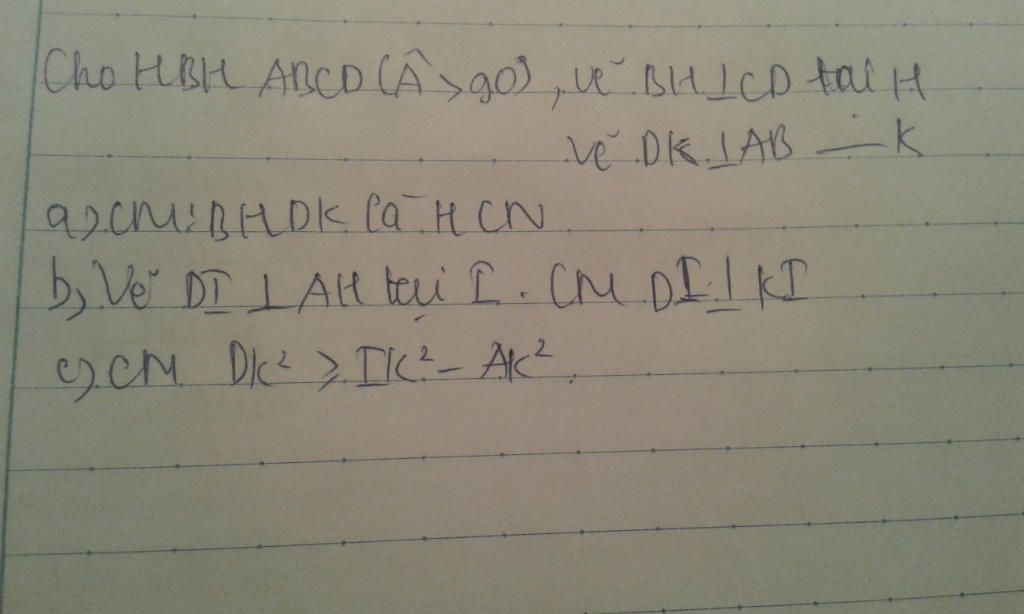 Cho HBH ABCD (Â > 90), vẽ BH ⊥ CD tại H
vẽ DK ⊥ AB — K
a) CM: BHDK là HCN
b, Vẽ DI ⊥ AH tại I. CM DI ⊥ KI
c) CM DK² ≥ IK² - AK².